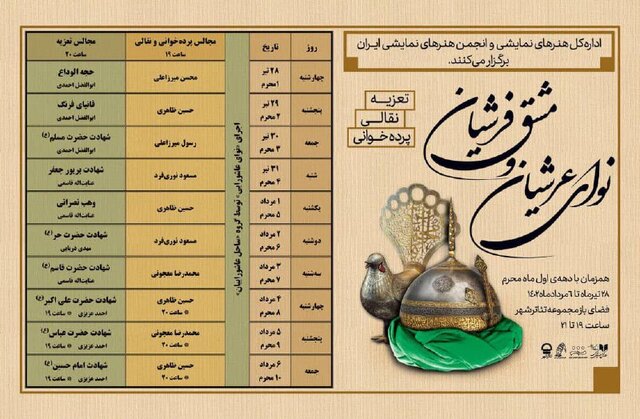 اداره‌کل هنرهای نمایشی و انجمن هنرهای نمایشی ایران
برگزار می‌کنند.
تعزیه
نقالی
پرده‌خوانی
مشق فرشیان
و
نوای عرشیان
همزمان با دهه‌ی اول ماه محرم
۲۸ تیرماه تا ۶ مردادماه ۱۴۰۲
فضای باز مجموعه تئاتر شهر
ساعت ۱۹ تا ۲۱
روز | تاریخ | مجالس پرده‌خوانی و نقالی ساعت ۱۹ | مجالس تعزیه ساعت ۲۰
چهارشنبه | ۲۸ تیر ۱ محرم | محسن میرزاعلی | حجه الوداع ابوالفضل احمدی
پنجشنبه | ۲۹ تیر ۲ محرم | حسین طاهری | فانیای فرنگ ابوالفضل احمدی
جمعه | ۳۰ تیر ۳ محرم | رسول میرزاعلی | شهادت حضرت مسلم (ع) ابوالفضل احمدی
شنبه | ۳۱ تیر ۴ محرم | مسعود نوری‌فرد | شهادت پرپور جعفر عنایت‌اله قاسمی
یکشنبه | ۱ مرداد ۵ محرم | حسین طاهری | وهب نصرانی عنایت‌اله قاسمی
دوشنبه | ۲ مرداد ۶ محرم | مسعود نوری‌فرد | شهادت حضرت حر (ع) مهدی دریایی
سه‌شنبه | ۳ مرداد ۷ محرم | محمدرضا معجونی | شهادت حضرت قاسم (ع) عنایت‌اله قاسمی
چهارشنبه | ۴ مرداد ۸ محرم | حسین طاهری * ساعت ۲۰ | شهادت حضرت علی اکبر (ع) احمد عزیزی * ساعت ۱۹
پنجشنبه | ۵ مرداد ۹ محرم | محمدرضا معجونی * ساعت ۲۰ | شهادت حضرت عباس (ع) احمد عزیزی * ساعت ۱۹
جمعه | ۶ مرداد ۱۰ محرم | حسین طاهری * ساعت ۲۰ | شهادت امام حسین (ع) احمد عزیزی * ساعت ۱۹
اجرای «نوای عاشورایی» توسط گروه «ساحل عاشوراییان»